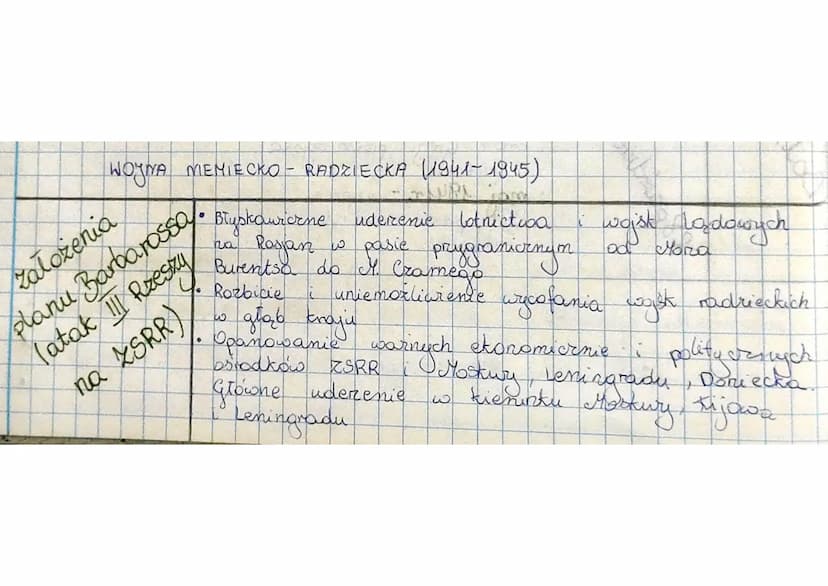 WOJNA NIEMIECKO - RADZIECKA (1941-1945)
założenia
planu Barbarossa
(atak III Rzeszy
na ZSRR)
• Błyskawiczne uderzenie lotnictwa i wojsk lądowych
na Rosjan w pasie przygranicznym od Morza
Barentsa do M. Czarnego
• Rozbicie i uniemożliwienie wycofania wojsk radzieckich
w głąb kraju
• Opanowanie ważnych ekonomicznie i politycznych
ośrodków ZSRR i Moskwy, Leningradu, Doniecka.
Główne uderzenie w kierunku Moskwy, Kijowa
i Leningradu